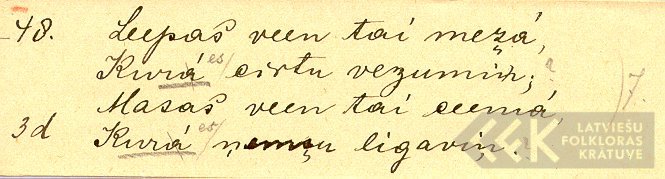 48. Leepas veen tai mežá,
Kurá es/ cirtu vezumiņ; ?
Masas veen tai ciemá, 7.
3d Kurá es/ ņemšu ligaviņ. ?
LATVIEŠU
FOLKLORAS
KRĀTUVE